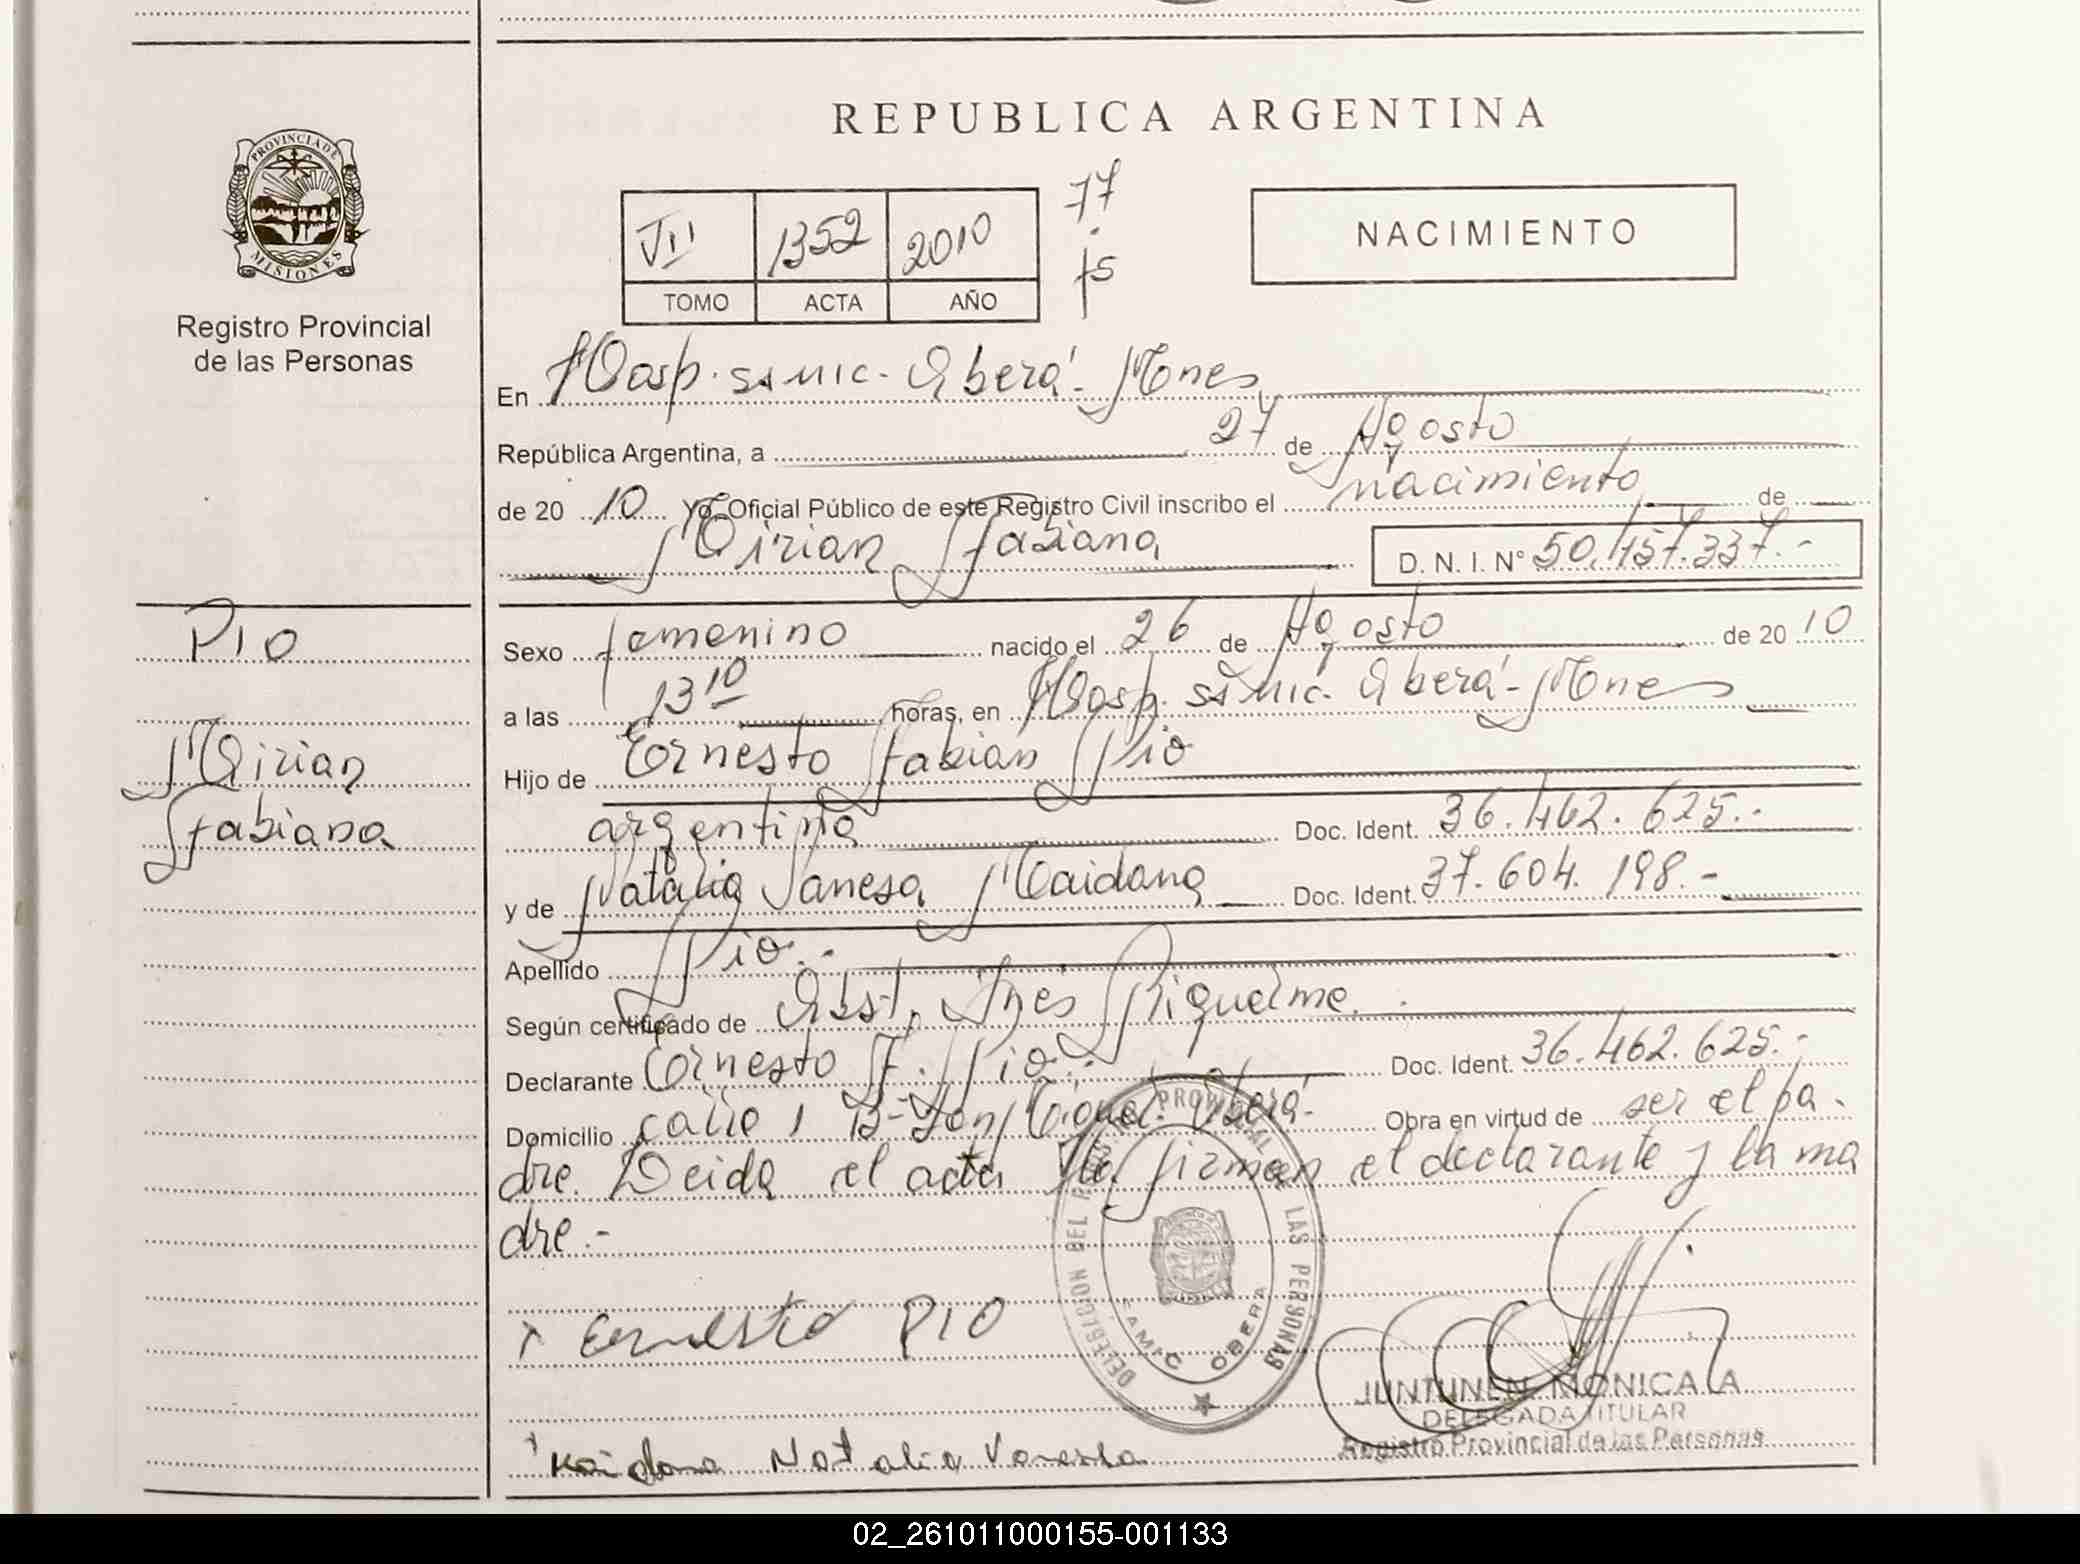 REPUBLICA ARGENTINA
PROVINCIA DE
MISIONES
Registro Provincial
de las Personas
VII 1352 2010
TOMO ACTA AÑO
77
fs
NACIMIENTO
En Hosp. samic. Oberá - Mnes
República Argentina, a 27 de Agosto
de 20 10 Yo, Oficial Público de este Registro Civil inscribo el nacimiento de
Mirian Fabiana
D. N. I. N° 50.157.337.-
PIO
Mirian
Fabiana
Sexo femenino nacido el 26 de Agosto de 20 10
a las 13 10 horas, en Hosp. samic. Oberá - Mnes
Hijo de Ernesto Fabian Pio
argentina Doc. Ident. 36.462.625.-
y de Natalia Vanesa Maidana Doc. Ident. 37.604.198.-
Apellido Pio.-
Según certificado de Obst. Ines Riquelme.
Declarante Ernesto F. Pio.- Doc. Ident. 36.462.625.-
Domicilio calle 1 B- San Miguel. Oberá- Obra en virtud de ser el pa-
dre. Leida el acta la firman el declarante y la ma
dre.-
DELEGACION DEL REGISTRO PROVINCIAL DE LAS PERSONAS
SAMIC OBERA
x Ernesto PIO
JUNTUNEN MONICA A
DELEGADA TITULAR
Registro Provincial de las Personas
x Maidana Natalia Vanessa
02_261011000155-001133